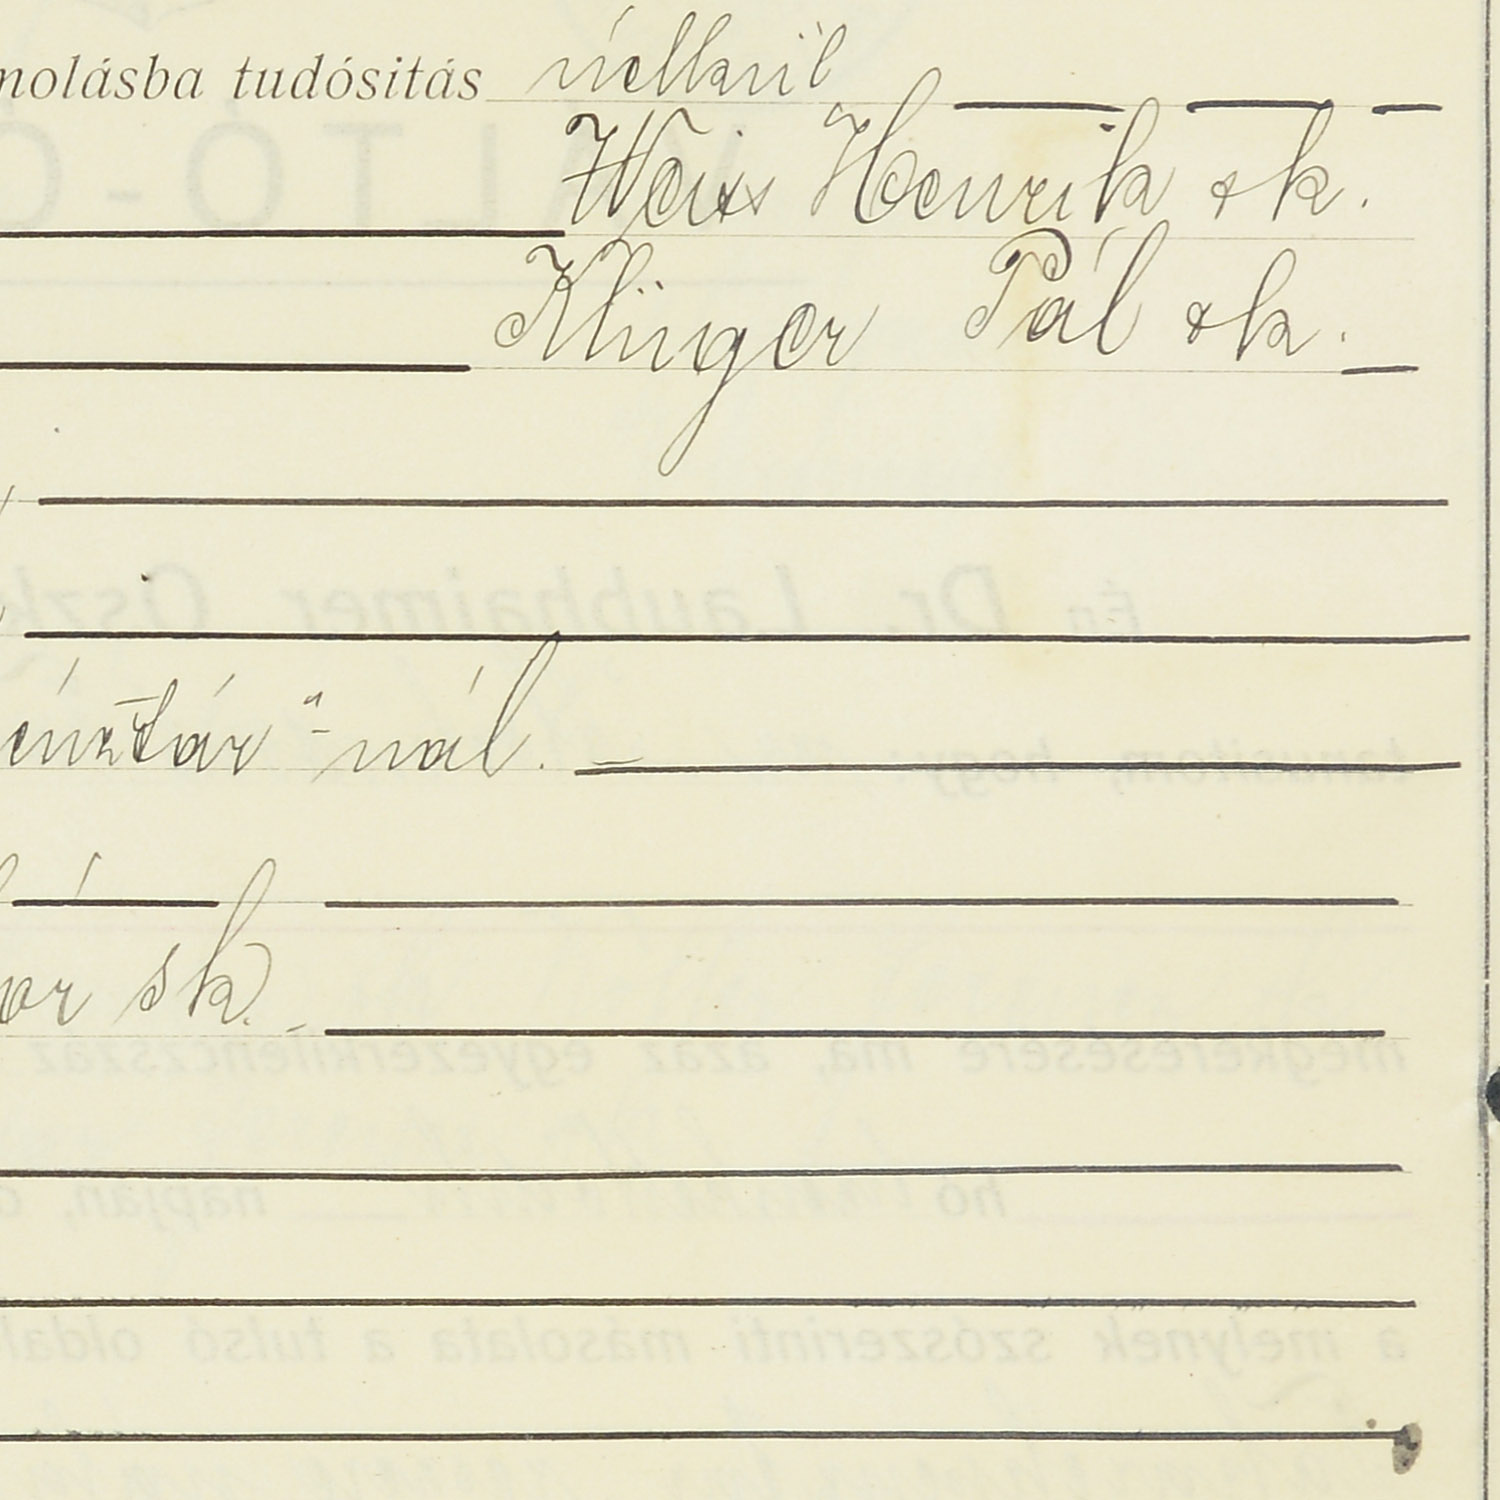 nolásba tudósitás nélkül
Weiss Henrik sk.
Klinger Pál sk.
énztár"-nál.
or sk.